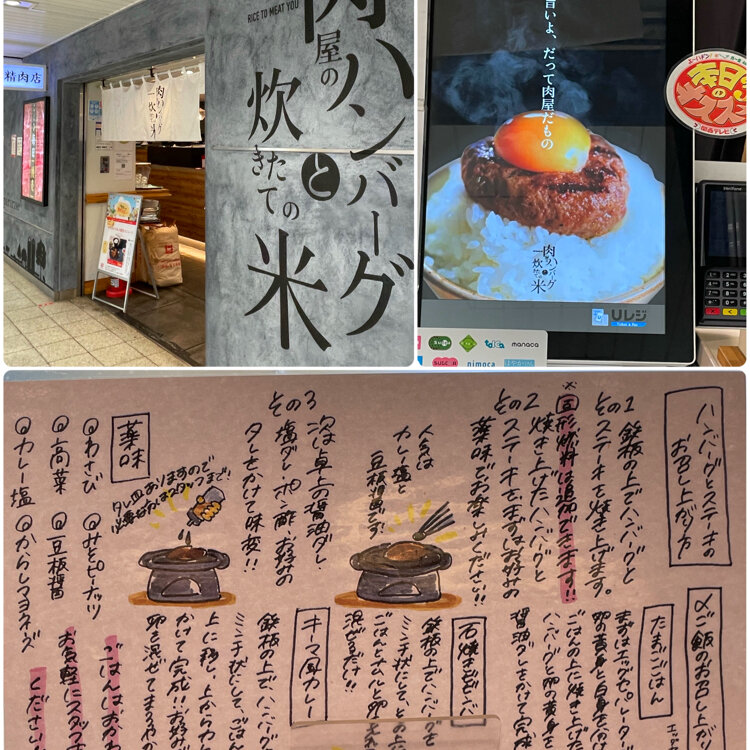 精肉店
RICE TO MEAT YOU
肉屋の
ハンバーグ
と
炊きたての
米
旨いよ、だって肉屋だもの
肉ハンバーグ
と
炊きたての米
リレジ
manaca
nimoca
ハンバーグとステーキの
お召し上がり方
1 鉄板の上でハンバーグと
そのステーキを焼き上げます。
※固形燃料は追加できます!!
2 焼き上げたハンバーグと
そのステーキを、まずはお好みの
薬味でお楽しみください!!
人気は
カレー塩と
豆板醤
3 次は卓上の醤油ダレ、
その塩ダレ、ポン酢、お好みの
タレをかけて味変!!
タレ皿ありますので
必要な方はスタッフまで!
薬味
◎わさび ◎みそピーナッツ
◎高菜 ◎豆板醤
◎カレー塩 ◎からしマヨネーズ
〆ご飯のお召し上が
たまごごはん
まずはエッグセパレーター
卵の黄身と白身を
ごはんの上に焼き上げた
ハンバーグと卵の黄身を
醤油ダレをかけて完成
石焼きビビンバ
鉄板の上でハンバーグを
ミンチ状にして、
ごはん
混ぜるだけ!!
キーマ風カレー
鉄板の上で、ハンバーグ
ミンチ状にして、ごはん
上に移し、上からカレ
かけて完成!!お好み
卵を混ぜてまろやか
ごはんはおかわ
お気軽にスタッフ
ください